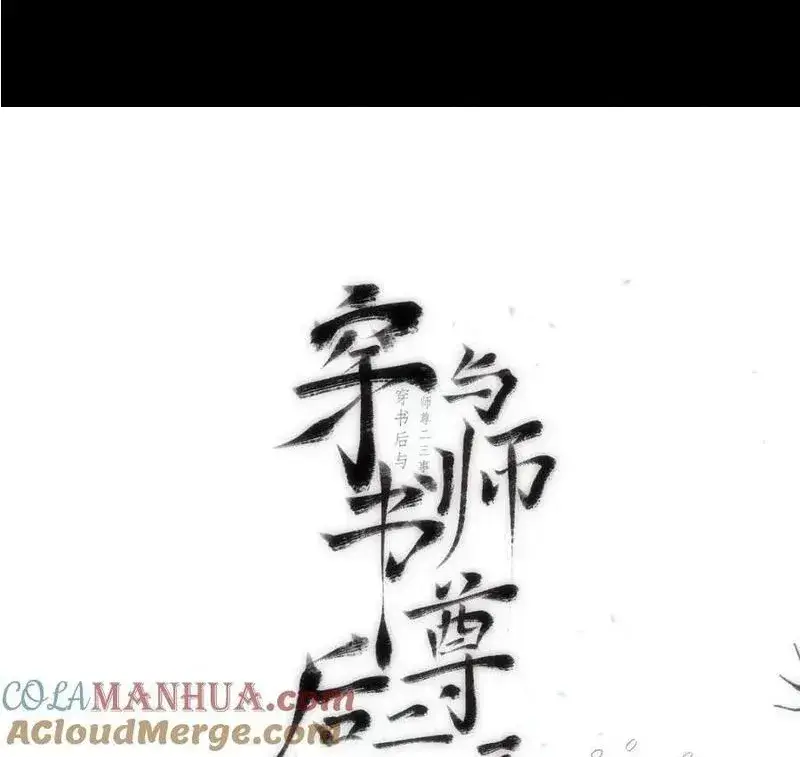 穿书后
与师尊二
穿书后与
师尊二三事
COLAMANHUA.com
ACloudMerge.com